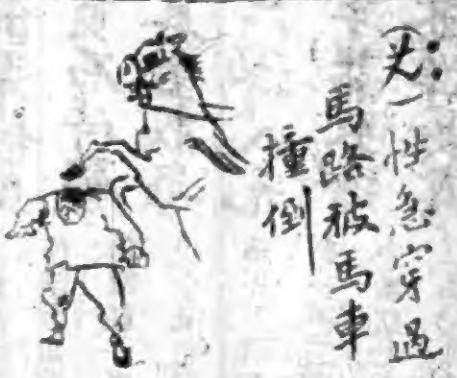 一性急穿過
馬路被馬車
撞倒